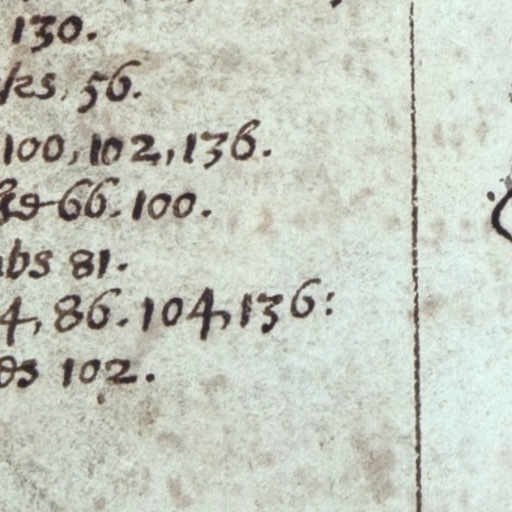 130.
ks. 56.
100, 102, 136.
66. 100.
bs 81.
4, 86. 104, 136:
es 102.